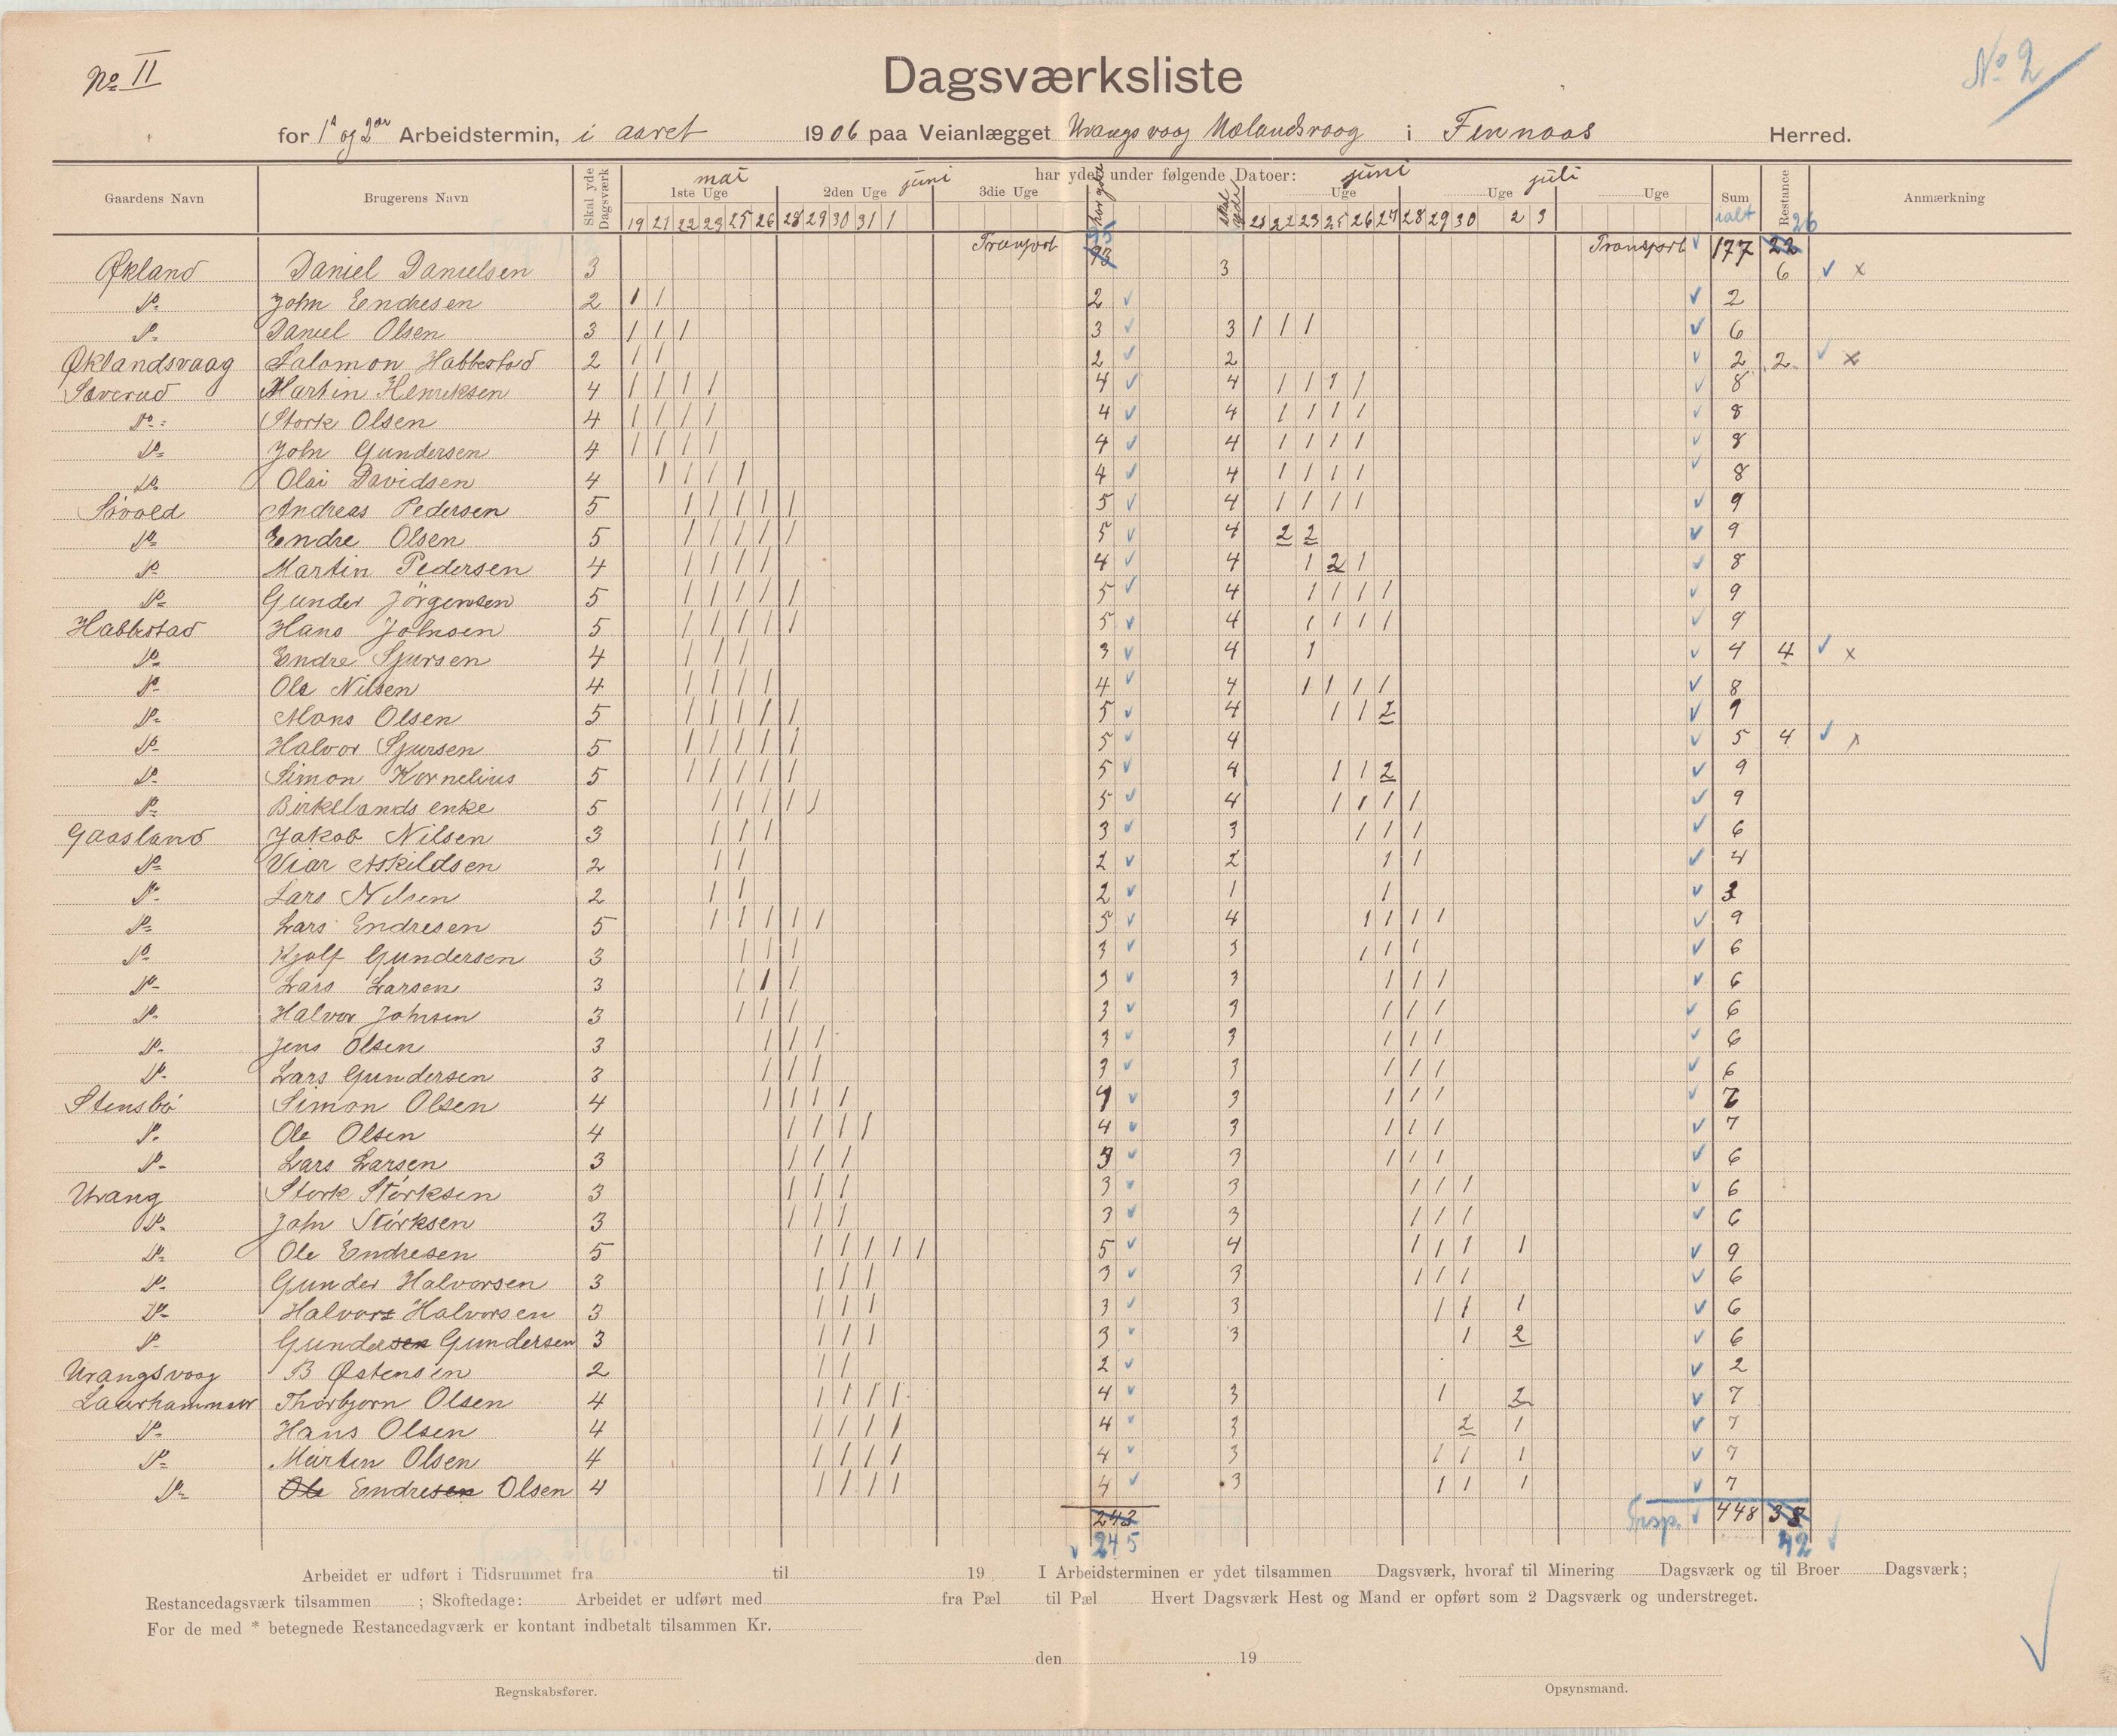 No II
Dagsværksliste
No 2
for 1st og 2den Arbeidstermin, i aaret 1906 paa Veianlægget Urangsvaag Mælandsvaag i Finnaas Herred.
Gaardens Navn Brugerens Navn Skal yde Dagsværk har ydet under følgende Datoer: Sum ialt Restance Anmærkning
mai juni juni juli
1ste Uge 2den Uge 3die Uge skal yde Uge Uge Uge
19 21 22 23 25 26 28 29 30 31 1 21 22 23 25 26 27 28 29 30 2 3
Transport 93 95 Transport 177 22 26
Økland Daniel Danielsen 3 3 6 x
Do John Endresen 2 1 1 2 2
Do Daniel Olsen 3 1 1 1 3 3 1 1 1 6
Øklandsvaag Salomon Habbestad 2 1 1 2 2 2 2 x
Sæverud Martin Henriksen 4 1 1 1 1 4 4 1 1 1 1 8
Do Stork Olsen 4 1 1 1 1 4 4 1 1 1 1 8
Do John Gundersen 4 1 1 1 1 4 4 1 1 1 1 8
Do Olai Davidsen 4 1 1 1 1 4 4 1 1 1 1 8
Søvold Andreas Pedersen 5 1 1 1 1 1 5 4 1 1 1 1 9
Do Endre Olsen 5 1 1 1 1 1 5 4 2 2 9
Do Martin Pedersen 4 1 1 1 1 4 4 1 2 1 8
Do Gunder Jörgensen 5 1 1 1 1 1 5 4 1 1 1 1 9
Habbestad Hans Johnsen 5 1 1 1 1 1 5 4 1 1 1 1 9
Do Endre Sjursen 4 1 1 1 3 4 1 4 4 x
Do Ole Nilsen 4 1 1 1 1 4 4 1 1 1 1 8
Do Mons Olsen 5 1 1 1 1 1 5 4 1 1 2 9
Do Halvor Sjursen 5 1 1 1 1 1 5 4 5 4 x
Do Simon Kornelius 5 1 1 1 1 1 5 4 1 1 2 9
Do Birkelands enke 5 1 1 1 1 1 5 4 1 1 1 1 9
Gaasland Jakob Nilsen 3 1 1 1 3 3 1 1 1 6
Do Viar Askildsen 2 1 1 2 2 1 1 4
Do Lars Nilsen 2 1 1 2 1 1 3
Do Lars Endresen 5 1 1 1 1 1 5 4 1 1 1 1 9
Do Kjolf Gundersen 3 1 1 1 3 3 1 1 1 6
Do Lars Larsen 3 1 1 1 3 3 1 1 1 6
Do Halvor Johnsen 3 1 1 1 3 3 1 1 1 6
Do Jens Olsen 3 1 1 1 3 3 1 1 1 6
Do Lars Gundersen 3 1 1 1 3 3 1 1 1 6
Stensbö Simon Olsen 4 1 1 1 1 4 3 1 1 1 7
Do Ole Olsen 4 1 1 1 1 4 3 1 1 1 7
Do Lars Larsen 3 1 1 1 3 3 1 1 1 6
Urang Stork Störksen 3 1 1 1 3 3 1 1 1 6
Do John Störksen 3 1 1 1 3 3 1 1 1 6
Do Ole Endresen 5 1 1 1 1 1 5 4 1 1 1 1 9
Do Gunder Halvorsen 3 1 1 1 3 3 1 1 1 6
Do Halvor Halvorsen 3 1 1 1 3 3 1 1 1 6
Do Gundersen Gundersen 3 1 1 1 3 3 1 2 6
Urangsvaag B Østensen 2 1 1 2 2
Laurhammer Thorbjorn Olsen 4 1 1 1 1 4 3 1 2 7
Do Hans Olsen 4 1 1 1 1 4 3 2 1 7
Do Martin Olsen 4 1 1 1 1 4 3 1 1 1 7
Do Ole Endresen Olsen 4 1 1 1 1 4 3 1 1 1 7
243 Trsp. 448 38
245 42
Arbeidet er udført i Tidsrummet fra til 19 I Arbeidsterminen er ydet tilsammen Dagsværk, hvoraf til Minering Dagsværk og til Broer Dagsværk;
Restancedagsværk tilsammen ; Skoftedage: Arbeidet er udført med fra Pæl til Pæl Hvert Dagsværk Hest og Mand er opført som 2 Dagsværk og understreget.
For de med * betegnede Restancedagværk er kontant indbetalt tilsammen Kr.
den 19
Regnskabsfører. Opsynsmand.